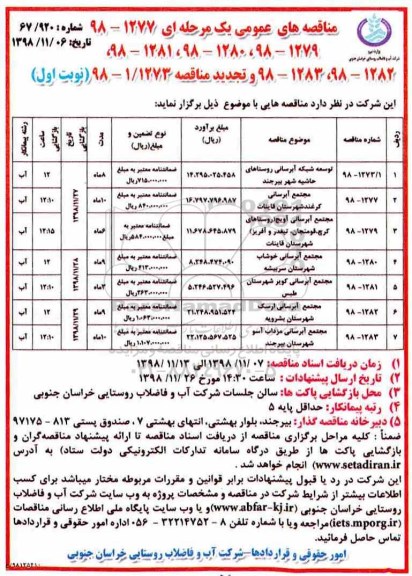 شماره : ۶۷/۹۲۰
تاریخ: ۱۳۹۸/۱۱/۰۶
مناقصه های عمومی یک مرحله ای ۱۲۷۷ - ۹۸
۱۲۷۹ - ۹۸، ۱۲۸۰ - ۹۸، ۱۲۸۱ - ۹۸،
۱۲۸۲ - ۹۸، ۱۲۸۳ - ۹۸ و تجدید مناقصه ۱/۱۲۷۳ - ۹۸ (نوبت اول)
این شرکت در نظر دارد مناقصه هایی با موضوع ذیل برگزار نماید:
ردیف شماره مناقصه موضوع مناقصه مبلغ برآورد (ریال) نوع تضمین و مبلغ(ریال) مدت تاریخ بازگشایی ساعت بازگشایی رشته پیمانکار
۱ ۹۸-۱۲۷۳/۱ توسعه شبکه آبرسانی روستاهای حاشیه شهر بیرجند ۱۴،۲۹۵،۰۲۵،۴۵۸ ضمانتنامه معتبر به مبلغ ۷۱۵،۰۰۰،۰۰۰ریال ۸ماه ۱۳۹۸/۱۱/۲۷ ۱۲ آب
۲ ۹۸-۱۲۷۷ مجتمع آبرسانی کرغندشهرستان قاینات ۱۶،۷۹۷،۷۹۶،۹۸۷ ضمانتنامه معتبر به مبلغ ۸۴۰،۰۰۰،۰۰۰ ریال ۱۰ماه ۱۲:۱۰ آب
۳ ۹۸-۱۲۷۹ مجتمع آبرسانی آویج(روستاهای کرج،فومنجان، تیغدر و آفریز) شهرستان قاینات ۱۱،۶۷۸،۶۴۵،۸۷۹ ضمانتنامه معتبر به مبلغ ۵۸۴،۰۰۰،۰۰۰ریال ۶ماه ۱۲:۱۵ آب
۴ ۹۸-۱۲۸۰ مجتمع آبرسانی خوشاب شهرستان سربیشه ۸،۲۴۸،۴۷۴،۰۹۰ ضمانتنامه معتبر به مبلغ ۴۱۳،۰۰۰،۰۰۰ ریال ۹ماه ۱۳۹۸/۱۱/۲۸ ۱۲ آب
۵ ۹۸-۱۲۸۱ مجتمع آبرسانی کویر شهرستان طبس ۵،۲۴۶،۵۲۷،۴۹۶ ضمانتنامه معتبر به مبلغ ۲۶۳،۰۰۰،۰۰۰ریال ۳ماه ۱۲:۱۵ آب
۶ ۹۸-۱۲۸۲ مجتمع آبرسانی ارسک شهرستان بشرویه ۲۱،۲۴۸،۹۵۱،۵۲۴ ضمانتنامه معتبر به مبلغ ۱،۰۶۳،۰۰۰،۰۰۰ ریال ۹ماه ۱۳۹۸/۱۱/۲۹ ۱۲ آب
۷ ۹۸-۱۲۸۳ مجتمع آبرسانی مزداب آسو شهرستان بیرجند ۲۲،۱۲۵،۵۶۷،۵۲۵ ضمانتنامه معتبر به مبلغ ۱،۱۰۷،۰۰۰،۰۰۰ ریال ۱۰ماه ۱۲:۱۰ آب
۱) زمان دریافت اسناد مناقصه: ۱۳۹۸/۱۱/۰۷ الی ۱۳۹۸/۱۱/۱۲
۲) تاریخ ارسال پیشنهادات : ساعت ۱۴:۳۰ مورخ ۱۳۹۸/۱۱/۲۶
۳) محل بازگشایی پاکت ها: سالن جلسات شرکت آب و فاضلاب روستایی خراسان جنوبی
۴) رتبه پیمانکار: حداقل پایه ۵
۵) دبیرخانه مناقصه گذار: بیرجند، بلوار بهشتی، انتهای بهشتی ۷ ، صندوق پستی ۸۱۳ - ۹۷۱۷۵
ضمناً : کلیه مراحل برگزاری مناقصه از دریافت اسناد مناقصه تا ارائه پیشنهاد مناقصه‌گران و
بازگشایی پاکت ها از طریق درگاه سامانه تدارکات الکترونیکی دولت ستاد) به آدرس
www.setadiran.ir) انجام خواهد شد .
این شرکت در رد یا قبول پیشنهادات برابر قوانین و مقررات مربوطه مختار میباشد برای کسب
اطلاعات بیشتر از شرایط شرکت در مناقصه و مشخصات پروژه به وب سایت شرکت آب و فاضلاب
روستایی خراسان جنوبی (www.abfar-kj.ir) و یا وب سایت پایگاه ملی اطلاع رسانی مناقصات
(iets.mporg.ir) مراجعه ویا با شماره تلفن ۸ - ۳۲۲۱۴۷۵۲ - ۰۵۶ اداره امور حقوقی و قراردادها
تماس حاصل فرمائید.
امور حقوقی و قراردادها-شرکت آب و فاضلاب روستایی خراسان جنوبی